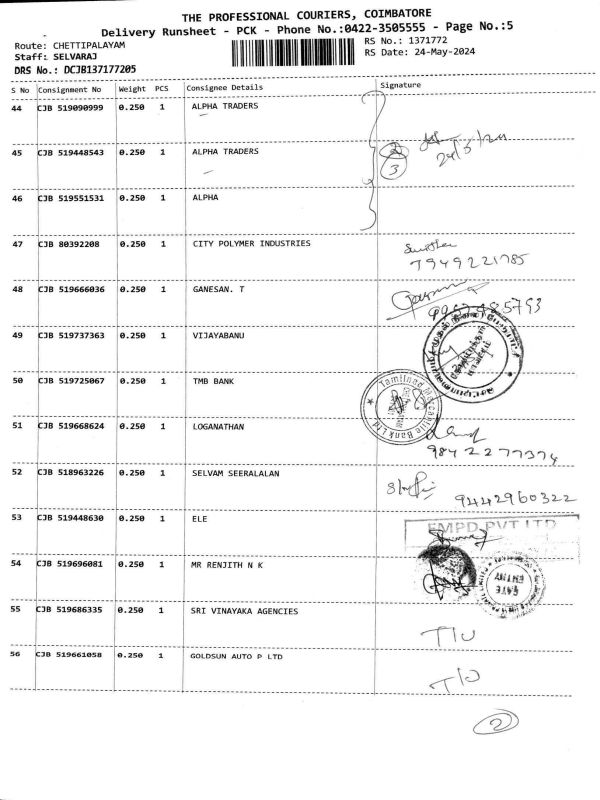 THE PROFESSIONAL COURIERS, COIMBATORE
Delivery Runsheet - PCK - Phone No.:0422-3505555 - Page No.:5
Route: CHETTIPALAYAM
RS No.: 1371772
Staff: SELVARAJ
RS Date: 24-May-2024
DRS No.: DCJB137177205
S No Consignment No Weight PCS Consignee Details Signature
44 CJB 519090999 0.250 1 ALPHA TRADERS
24/5/24
45 CJB 519448543 0.250 1 ALPHA TRADERS
3
46 CJB 519551531 0.250 1 ALPHA
47 CJB 80392208 0.250 1 CITY POLYMER INDUSTRIES
7949221785
48 CJB 519666036 0.250 1 GANESAN. T
49 CJB 519737363 0.250 1 VIJAYABANU
50 CJB 519725067 0.250 1 TMB BANK
Tamilnad Mercantile Bank Ltd
51 CJB 519668624 0.250 1 LOGANATHAN
9842277374
52 CJB 518963226 0.250 1 SELVAM SEERALALAN
9442960322
53 CJB 519448630 0.250 1 ELE
EMPD PVT LTD
54 CJB 519696081 0.250 1 MR RENJITH N K
GATE ENTRY
55 CJB 519686335 0.250 1 SRI VINAYAKA AGENCIES
T/U
56 CJB 519661058 0.250 1 GOLDSUN AUTO P LTD
T/U
2